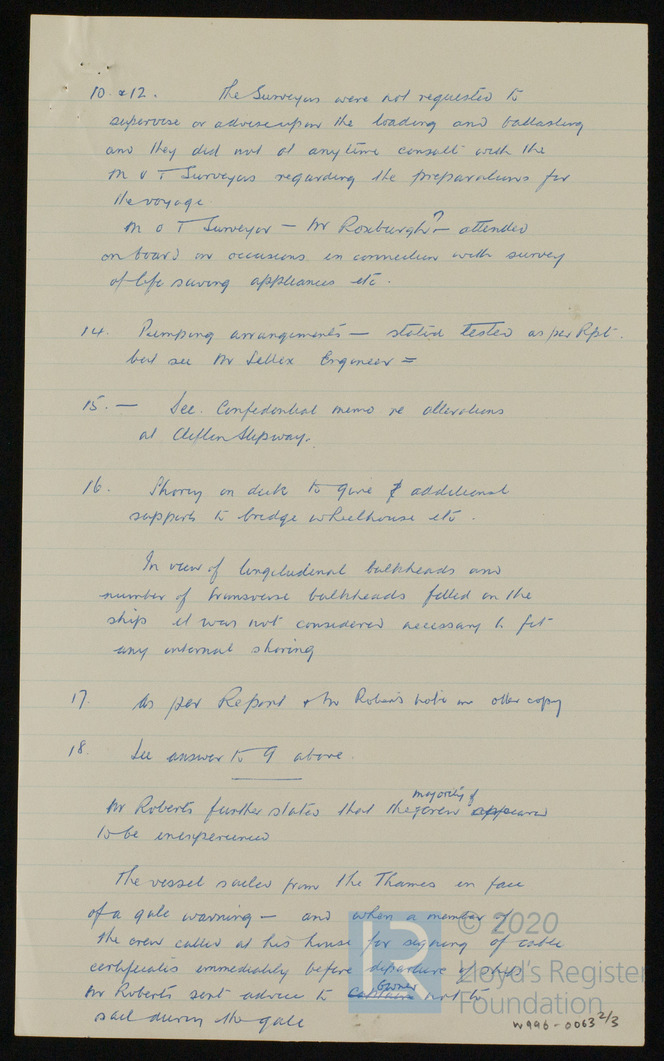 10 & 12. The Surveyors were not requested to
supervise or advise upon the loading and ballasting
and they did not at any time consult with the
M o T Surveyors regarding the preparations for
the voyage.
M o T Surveyor — Mr Roxburgh? — attended
on board on occasions in connection with survey
of life saving appliances etc.
14. Pumping arrangements — stated tested as per Rpt.
but see Mr Engineer =
15. — See. Confidential memo re alterations
at Slipway.
16. Shoring on deck to give additional
supports to bridge wheelhouse etc.
In view of longitudinal bulkheads and
number of transverse bulkheads fitted in the
ship it was not considered necessary to fit
any internal shoring
17. As per Report & Mr Roberts note on other copy
18. See answer to 9 above.
Mr Roberts further stated that the majority of crew appeared
to be inexperienced
The vessel sailed from the Thames in face
of a gale warning — and when a member of
the crew called at his house for signing of cable
certificates immediately before departure of ship
Mr Roberts sent advice to Owner not to
sail during the gale
© 2020
Lloyd's Register
Foundation
W996-0063 2/3